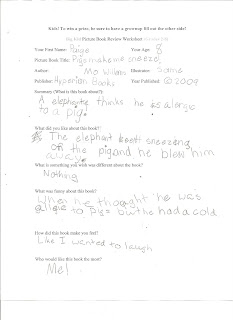 Kids! To win a prize, be sure to have a grownup fill out the other side!
Picture Book Review Worksheet
Your First Name: Paige Your Age: 8
Picture Book Title: Pigs make me sneeze!
Author: Mo Willems Illustrator: Same
Publisher: Hyperion Books Published: ©2009
Summary (What is this book about?):
A elephante thinks he is
to a pig.
What did you like about this book?
The elephant sneezeng
on the pig and he blew him
away.
What is something you wish was different about the book?
Nothing
What was funny about this book?
When he thought he was
to pigs but he had a cold
How did this book make you feel?
Like I wanted to laugh
Who would like this book the most?
Me!